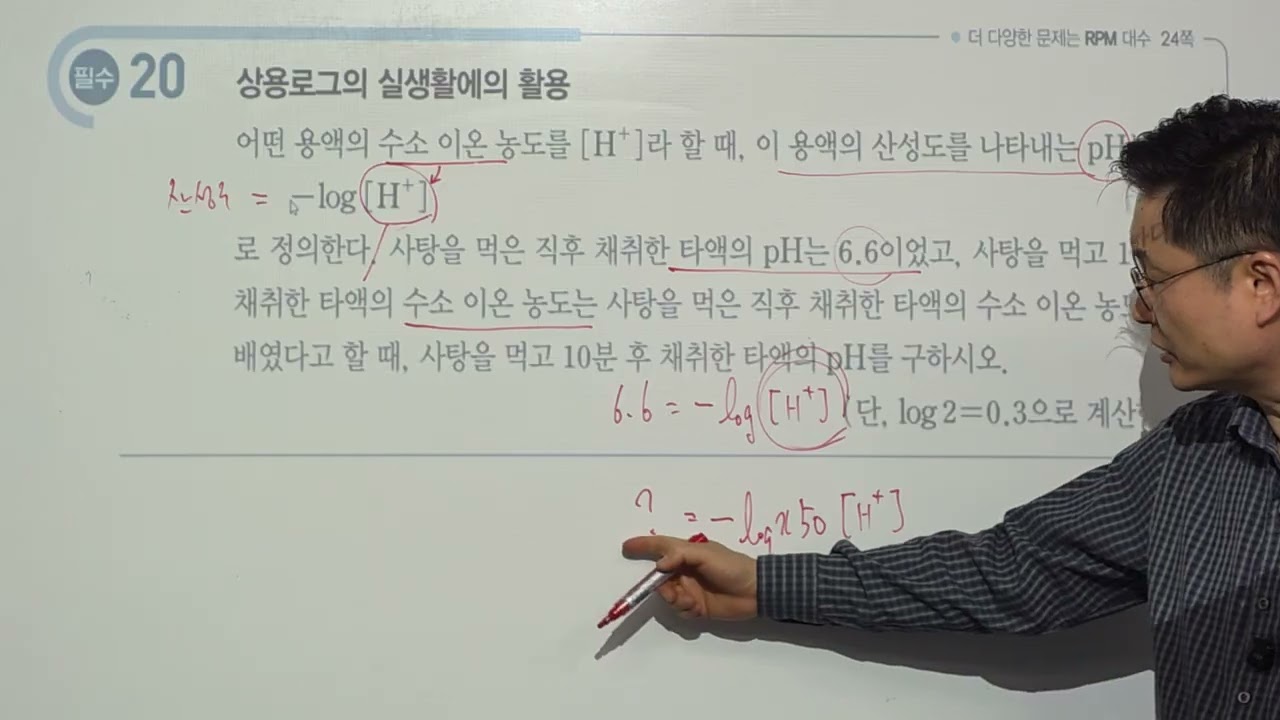 더 다양한 문제는 RPM 대수 24쪽
필수 20 상용로그의 실생활에의 활용
어떤 용액의 수소 이온 농도를 [H⁺]라 할 때, 이 용액의 산성도를 나타내는 pH
산성도 = -log[H⁺]
로 정의한다. 사탕을 먹은 직후 채취한 타액의 pH는 6.6이었고, 사탕을 먹고 1
채취한 타액의 수소 이온 농도는 사탕을 먹은 직후 채취한 타액의 수소 이온 농
배였다고 할 때, 사탕을 먹고 10분 후 채취한 타액의 pH를 구하시오.
6.6 = -log[H⁺] (단, log 2=0.3으로 계산
? = -log x50 [H⁺]